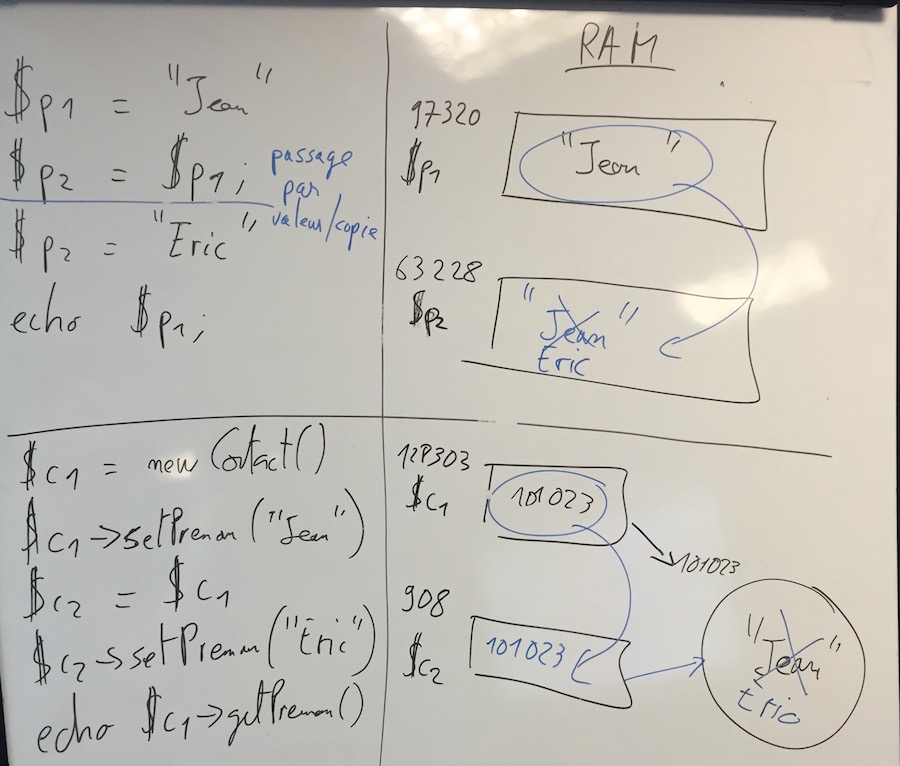 $p1 = "Jean"
$p2 = $p1;
passage
par
valeur/copie
$p2 = "Eric"
echo $p1;
RAM
97320
$p1
"Jean"
63228
$p2
"Jean"
Eric
$c1 = new Contact()
$c1->setPrenom("Jean")
$c2 = $c1
$c2->setPrenom("Eric")
echo $c1->getPrenom()
$c1
101023
101023
908
$c2
101023
"Jean"
Eric